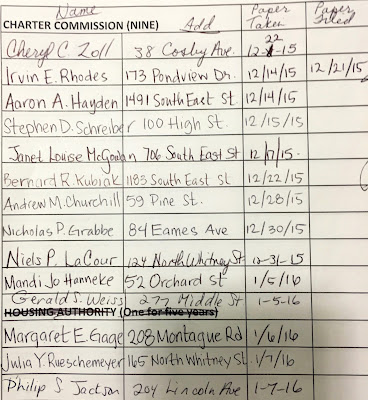 Name Add Paper Taken Paper Filed
CHARTER COMMISSION (NINE)
Cheryl C. Zoll 38 Cosby Ave. 12-22-15
Irvin E. Rhodes 173 Pondview Dr. 12/14/15 12/21/15
Aaron A. Hayden 1491 South East St. 12/14/15
Stephen D. Schreiber 100 High St. 12/15/15
Janet Louise McGowan 706 South East St 12/17/15
Bernard R. Kubiak 1183 South East St. 12/22/15
Andrew M. Churchill 59 Pine St. 12/28/15
Nicholas P. Grabbe 84 Eames Ave 12/30/15
Niels P. LaCour 124 North Whitney St 12-31-15
Mandi Jo Hanneke 52 Orchard St 1/5/16
Gerald S. Weiss 277 Middle St 1-5-16
HOUSING AUTHORITY (One for five years)
Margaret E Gage 208 Montague Rd 1/6/16
Julia Y. Rueschemeyer 165 North Whitney St. 1/7/16
Philip S Jackson 204 Lincoln Ave 1-7-16